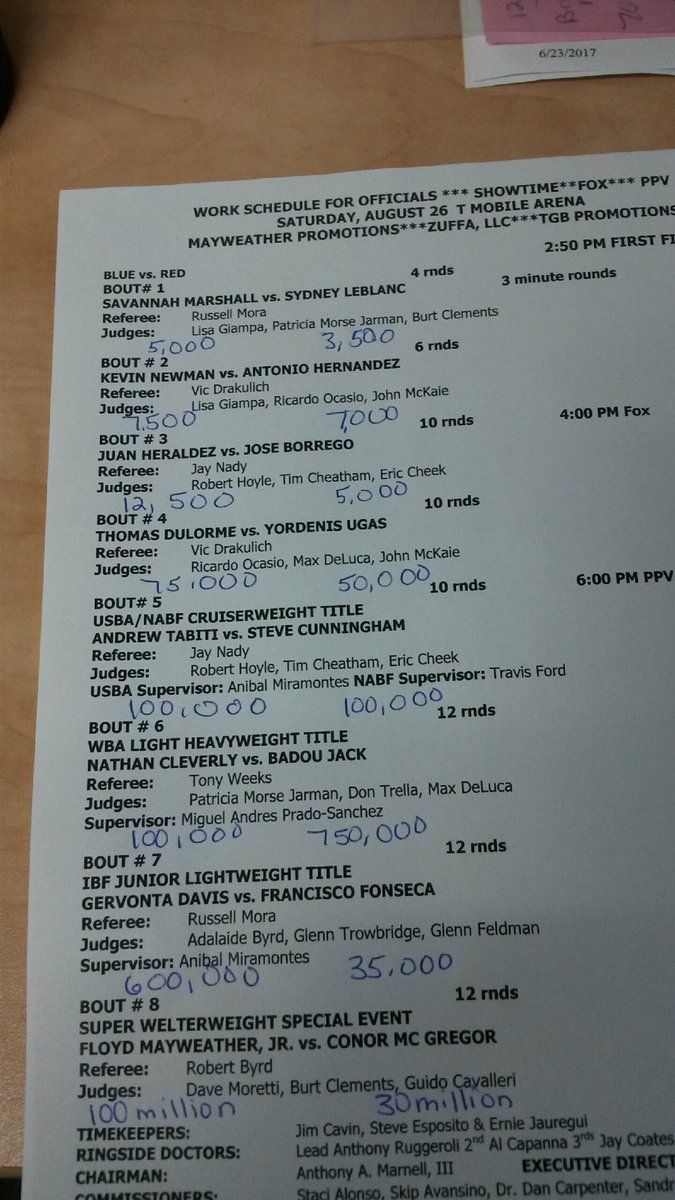 6/23/2017
WORK SCHEDULE FOR OFFICIALS *** SHOWTIME**FOX*** PPV
SATURDAY, AUGUST 26 T MOBILE ARENA
MAYWEATHER PROMOTIONS***ZUFFA, LLC***TGB PROMOTIONS
2:50 PM FIRST FI
BLUE vs. RED
BOUT# 1 4 rnds 3 minute rounds
SAVANNAH MARSHALL vs. SYDNEY LEBLANC
Referee: Russell Mora
Judges: Lisa Giampa, Patricia Morse Jarman, Burt Clements
5,000 3,500
BOUT # 2 6 rnds
KEVIN NEWMAN vs. ANTONIO HERNANDEZ
Referee: Vic Drakulich
Judges: Lisa Giampa, Ricardo Ocasio, John McKaie
7,500 7,000
BOUT # 3 10 rnds 4:00 PM Fox
JUAN HERALDEZ vs. JOSE BORREGO
Referee: Jay Nady
Judges: Robert Hoyle, Tim Cheatham, Eric Cheek
12,500 5,000
BOUT # 4 10 rnds
THOMAS DULORME vs. YORDENIS UGAS
Referee: Vic Drakulich
Judges: Ricardo Ocasio, Max DeLuca, John McKaie
75,000 50,000
BOUT# 5 10 rnds 6:00 PM PPV
USBA/NABF CRUISERWEIGHT TITLE
ANDREW TABITI vs. STEVE CUNNINGHAM
Referee: Jay Nady
Judges: Robert Hoyle, Tim Cheatham, Eric Cheek
USBA Supervisor: Anibal Miramontes NABF Supervisor: Travis Ford
100,000 100,000
BOUT # 6 12 rnds
WBA LIGHT HEAVYWEIGHT TITLE
NATHAN CLEVERLY vs. BADOU JACK
Referee: Tony Weeks
Judges: Patricia Morse Jarman, Don Trella, Max DeLuca
Supervisor: Miguel Andres Prado-Sanchez
100,000 750,000
BOUT # 7 12 rnds
IBF JUNIOR LIGHTWEIGHT TITLE
GERVONTA DAVIS vs. FRANCISCO FONSECA
Referee: Russell Mora
Judges: Adalaide Byrd, Glenn Trowbridge, Glenn Feldman
Supervisor: Anibal Miramontes
600,000 35,000
BOUT # 8 12 rnds
SUPER WELTERWEIGHT SPECIAL EVENT
FLOYD MAYWEATHER, JR. vs. CONOR MC GREGOR
Referee: Robert Byrd
Judges: Dave Moretti, Burt Clements, Guido Cavalleri
100 million 30 million
TIMEKEEPERS: Jim Cavin, Steve Esposito & Ernie Jauregui
RINGSIDE DOCTORS: Lead Anthony Ruggeroli 2nd Al Capanna 3rds Jay Coates
CHAIRMAN: Anthony A. Marnell, III EXECUTIVE DIRECT
COMMISSIONERS: Staci Alonso, Skip Avansino, Dr. Dan Carpenter, Sandr